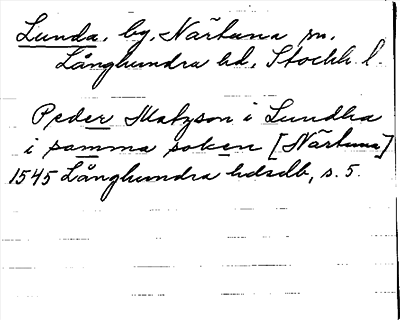 Lunda, by, Närtuna sn.
Långhundra hd, Stockh. l.
Peder Matzson i Lundha
i samma soken [Närtuna]
1545 Långhundra hdsdb, s. 5.